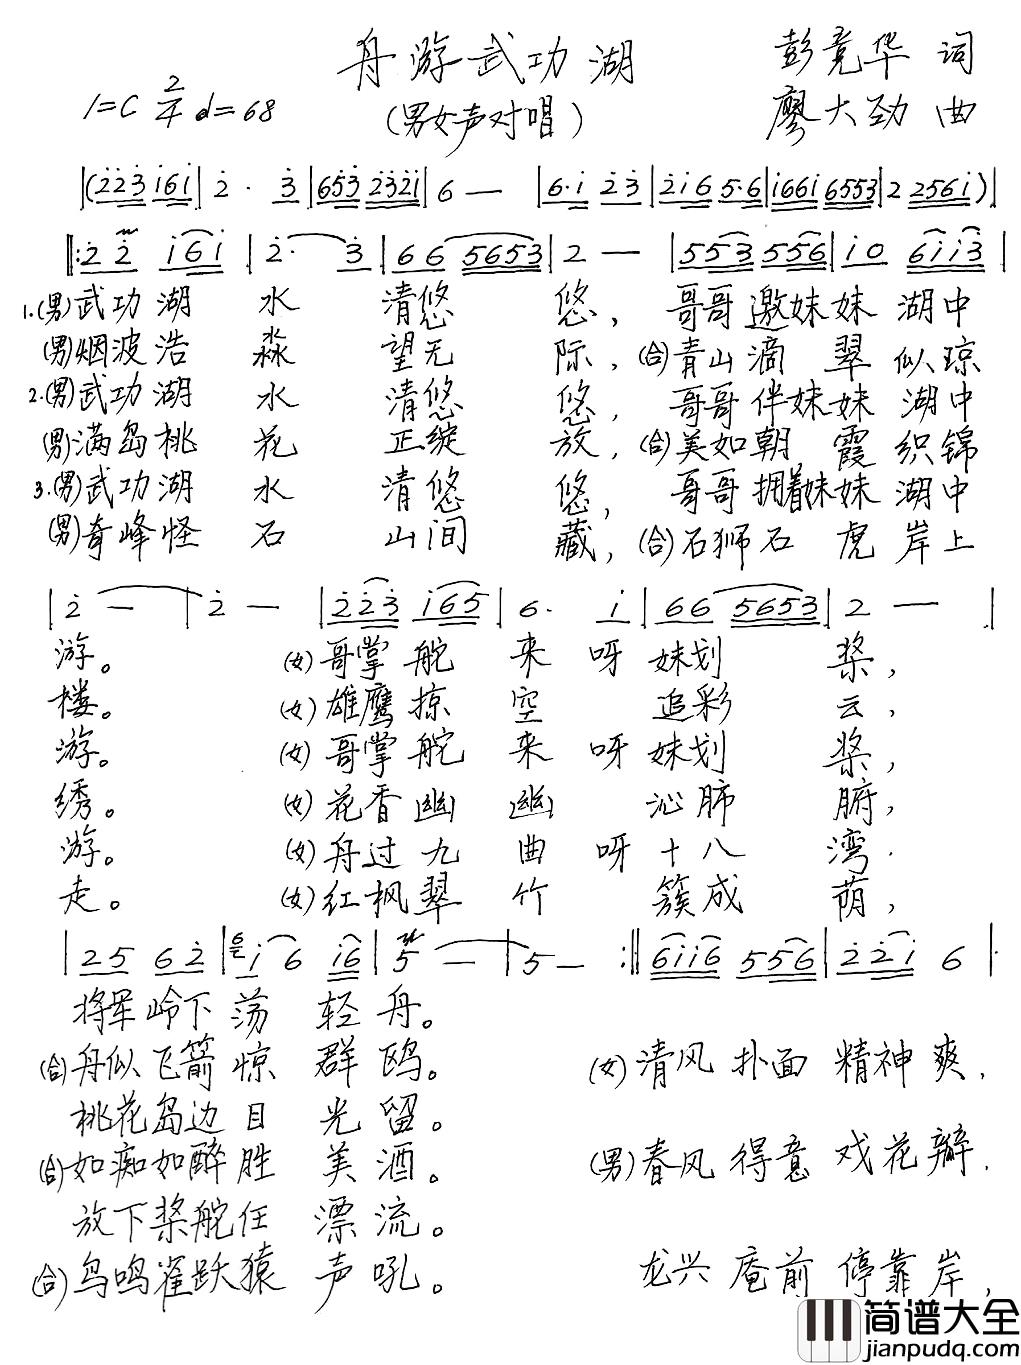 舟游武功湖
彭竟华 词
1=C 2/4 d=68
(男女声对唱)
廖大劲 曲
|(223 161|2· 3|653 2321|6 —|6·1 23|216 5·6|1661 6553|2 2561)|
‖:22 161|2· 3|66 5653|2 —|553 556|10 6113|
1.(男)武功湖 水 清悠 悠, 哥哥邀妹妹 湖中
(男)烟波浩 淼 望无 际, (合)青山滴 翠 似琼
2.(男)武功湖 水 清悠 悠, 哥哥伴妹妹 湖中
(男)满岛桃 花 正绽 放, (合)美如朝 霞 织锦
3.(男)武功湖 水 清悠 悠, 哥哥拥着妹妹 湖中
(男)奇峰怪 石 山间 藏, (合)石狮石 虎 岸上
|2 —|2 —|223 165|6· 1|66 5653|2 —|
游。 (女)哥掌舵 来 呀 妹划 桨,
楼。 (女)雄鹰掠 空 追彩 云,
游。 (女)哥掌舵 来 呀 妹划 桨,
绣。 (女)花香幽 幽 沁肺 腑,
游。 (女)舟过九 曲 呀 十八 湾.
走。 (女)红枫翠 竹 簇成 荫,
|25 62|6 16 16|5 —|5 —:‖6116 556|221 6|
将军岭下 荡 轻 舟。
(合)舟似飞箭 惊 群 鸥。 (女)清风 扑面 精神 爽,
桃花岛边 目 光 留。
(合)如痴如醉 胜 美 酒。 (男)春风 得意 戏花瓣.
放下桨舵任 漂 流。
(合)鸟鸣雀跃猿 声 吼。 龙兴 庵前 停靠 岸,
简谱大全
jianpudq.com